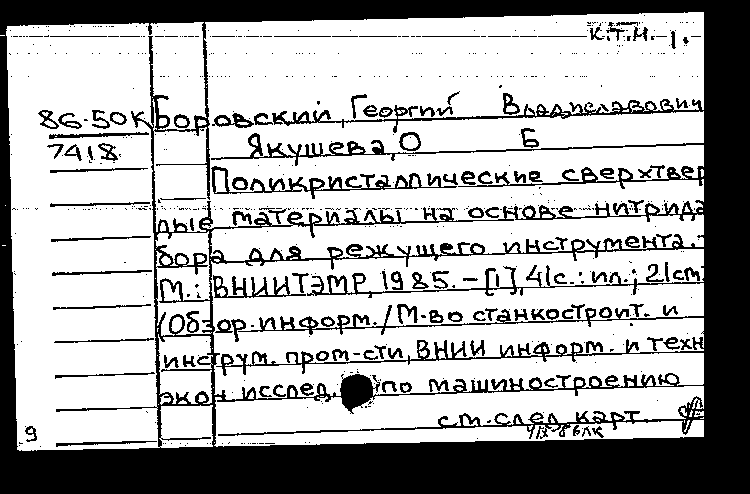 К.Т.Н. 1.
86-50К Боровский, Георгий Владиславович
7418 Якушева, О Б
Поликристаллические сверхтвер
дые материалы на основе нитрида
бора для режущего инструмента. -
М.: ВНИИТЭМР, 1985. - [1], 41с.: ил.; 21см
(Обзор. информ. / М-во станкостроит. и
инструм. пром-сти, ВНИИ информ. и техн
экон исслед. по машиностроению
см. след. карт.
9